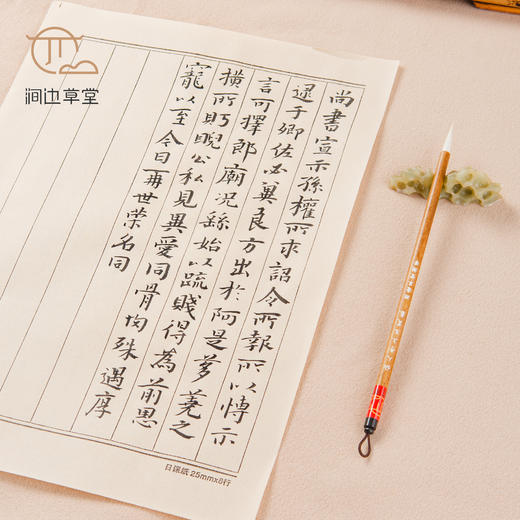 涧边草堂
尚書宣示孫權所求詔令所報所以博示
逮于卿佐必冀良方出於阿是芻蕘之
言可擇郎廟況繇始以疏賤得為前恩
橫所盱睨公私見異愛同骨肉殊遇厚
寵以至今日再世榮名同
日课纸 25mmx8行